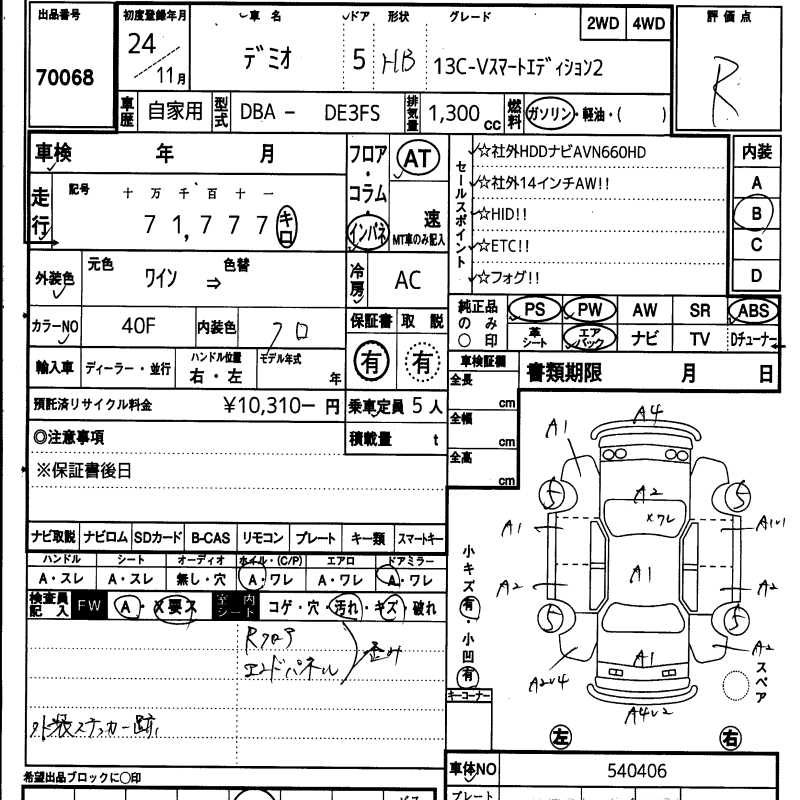 出品番号 初度登録年月 車名 ドア 形状 グレード 2WD 4WD 評価点
70068 24/11月 デミオ 5 HB 13C-Vスマートエディション2 R
車歴 自家用 型式 DBA - DE3FS 排気量 1,300 cc 燃料 ガソリン・軽油・( )
車検 年 月 フロア・コラム・インパネ AT 速 MT車のみ記入
セールスポイント
☆社外HDDナビAVN660HD
☆社外14インチAW!!
☆HID!!
☆ETC!!
☆フォグ!!
内装
A
B
C
D
走行 記号 十 万 千 百 十 一
71,777 キロ
外装色 元色 ワイン ⇒ 色替 冷房 AC
カラーNO 40F 内装色 クロ 保証書 取説
有 有
純正品のみ〇印 PS PW AW SR ABS
革シート エアバック ナビ TV Dチューナー
輸入車 ディーラー・並行 ハンドル位置 右・左 モデル年式 年
車検証欄 書類期限 月 日
全長 cm
全幅 cm
全高 cm
預託済リサイクル料金 ¥10,310- 円 乗車定員 5 人
積載量 t
◎注意事項
※保証書後日
ナビ取説 ナビロム SDカード B-CAS リモコン プレート キー類 スマートキー
ハンドル シート オーディオ ホイル・(C/P) エアロ ドアミラー
A・スレ A・スレ 無し・穴 A・ワレ A・ワレ A・ワレ
検査員記入 FW A・X要ス 室内シート コゲ・穴・汚れ・キズ・破れ
Rフロア
エンドパネル 歪み
外装ステッカー跡
小キズ有・小凹有
キーコーナー
A4
A1
5 5
A2
Xワレ
A1 A1
A1
A2 A2
5 5
A2
A1
A2U4
A4U2
スペア
左 右
希望出品ブロックに〇印
車体NO 540406
プレート